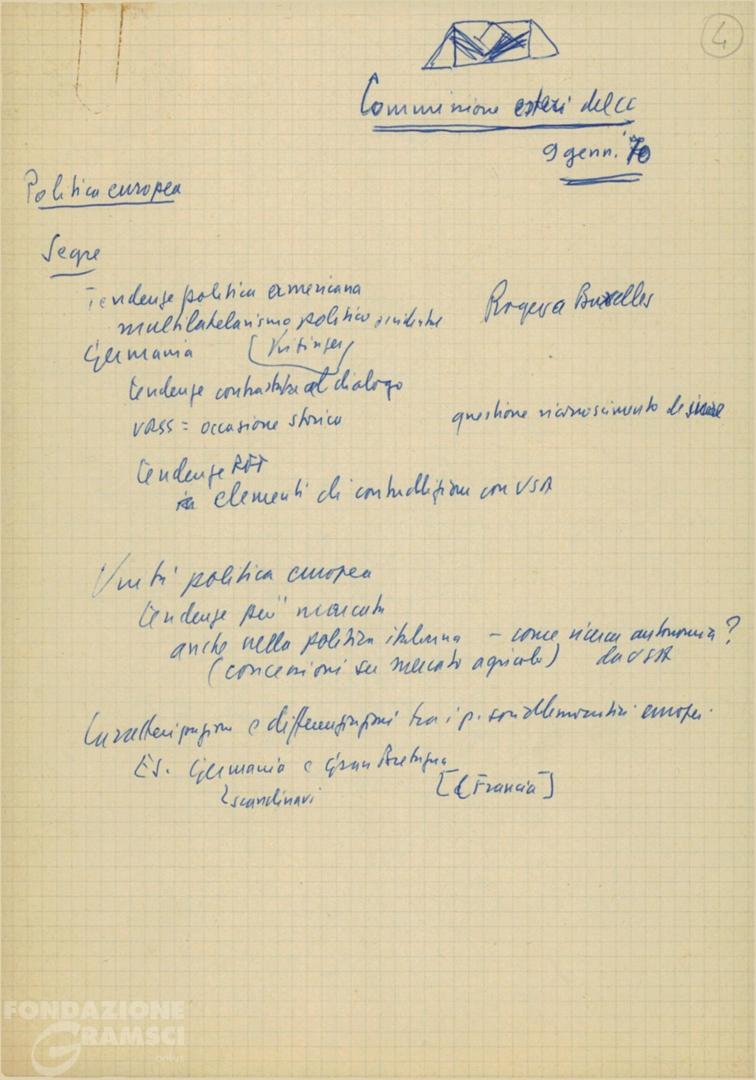 4
Commissione esteri del CC
9 genn. 70
Politica europea
Segre
Tendenze politica americana
multilatelarismo politico
Rogers a Bruxelles
Germania
tendenze contrastate al dialogo
URSS = occasione storica
questione riconoscimento
tendenze RFT
elementi di contraddizione con USA
Unità politica europea
tendenze più marcate
anche nella politica italiana - come ricerca autonomia?
(concessioni su mercato agricolo) da USA
Caratterizzazione e differenziazioni tra i p. socialdemocratici europei.
Es. Germania e Gran Bretagna
scandinavi
[e Francia]
FONDAZIONE
GRAMSCI
onlus